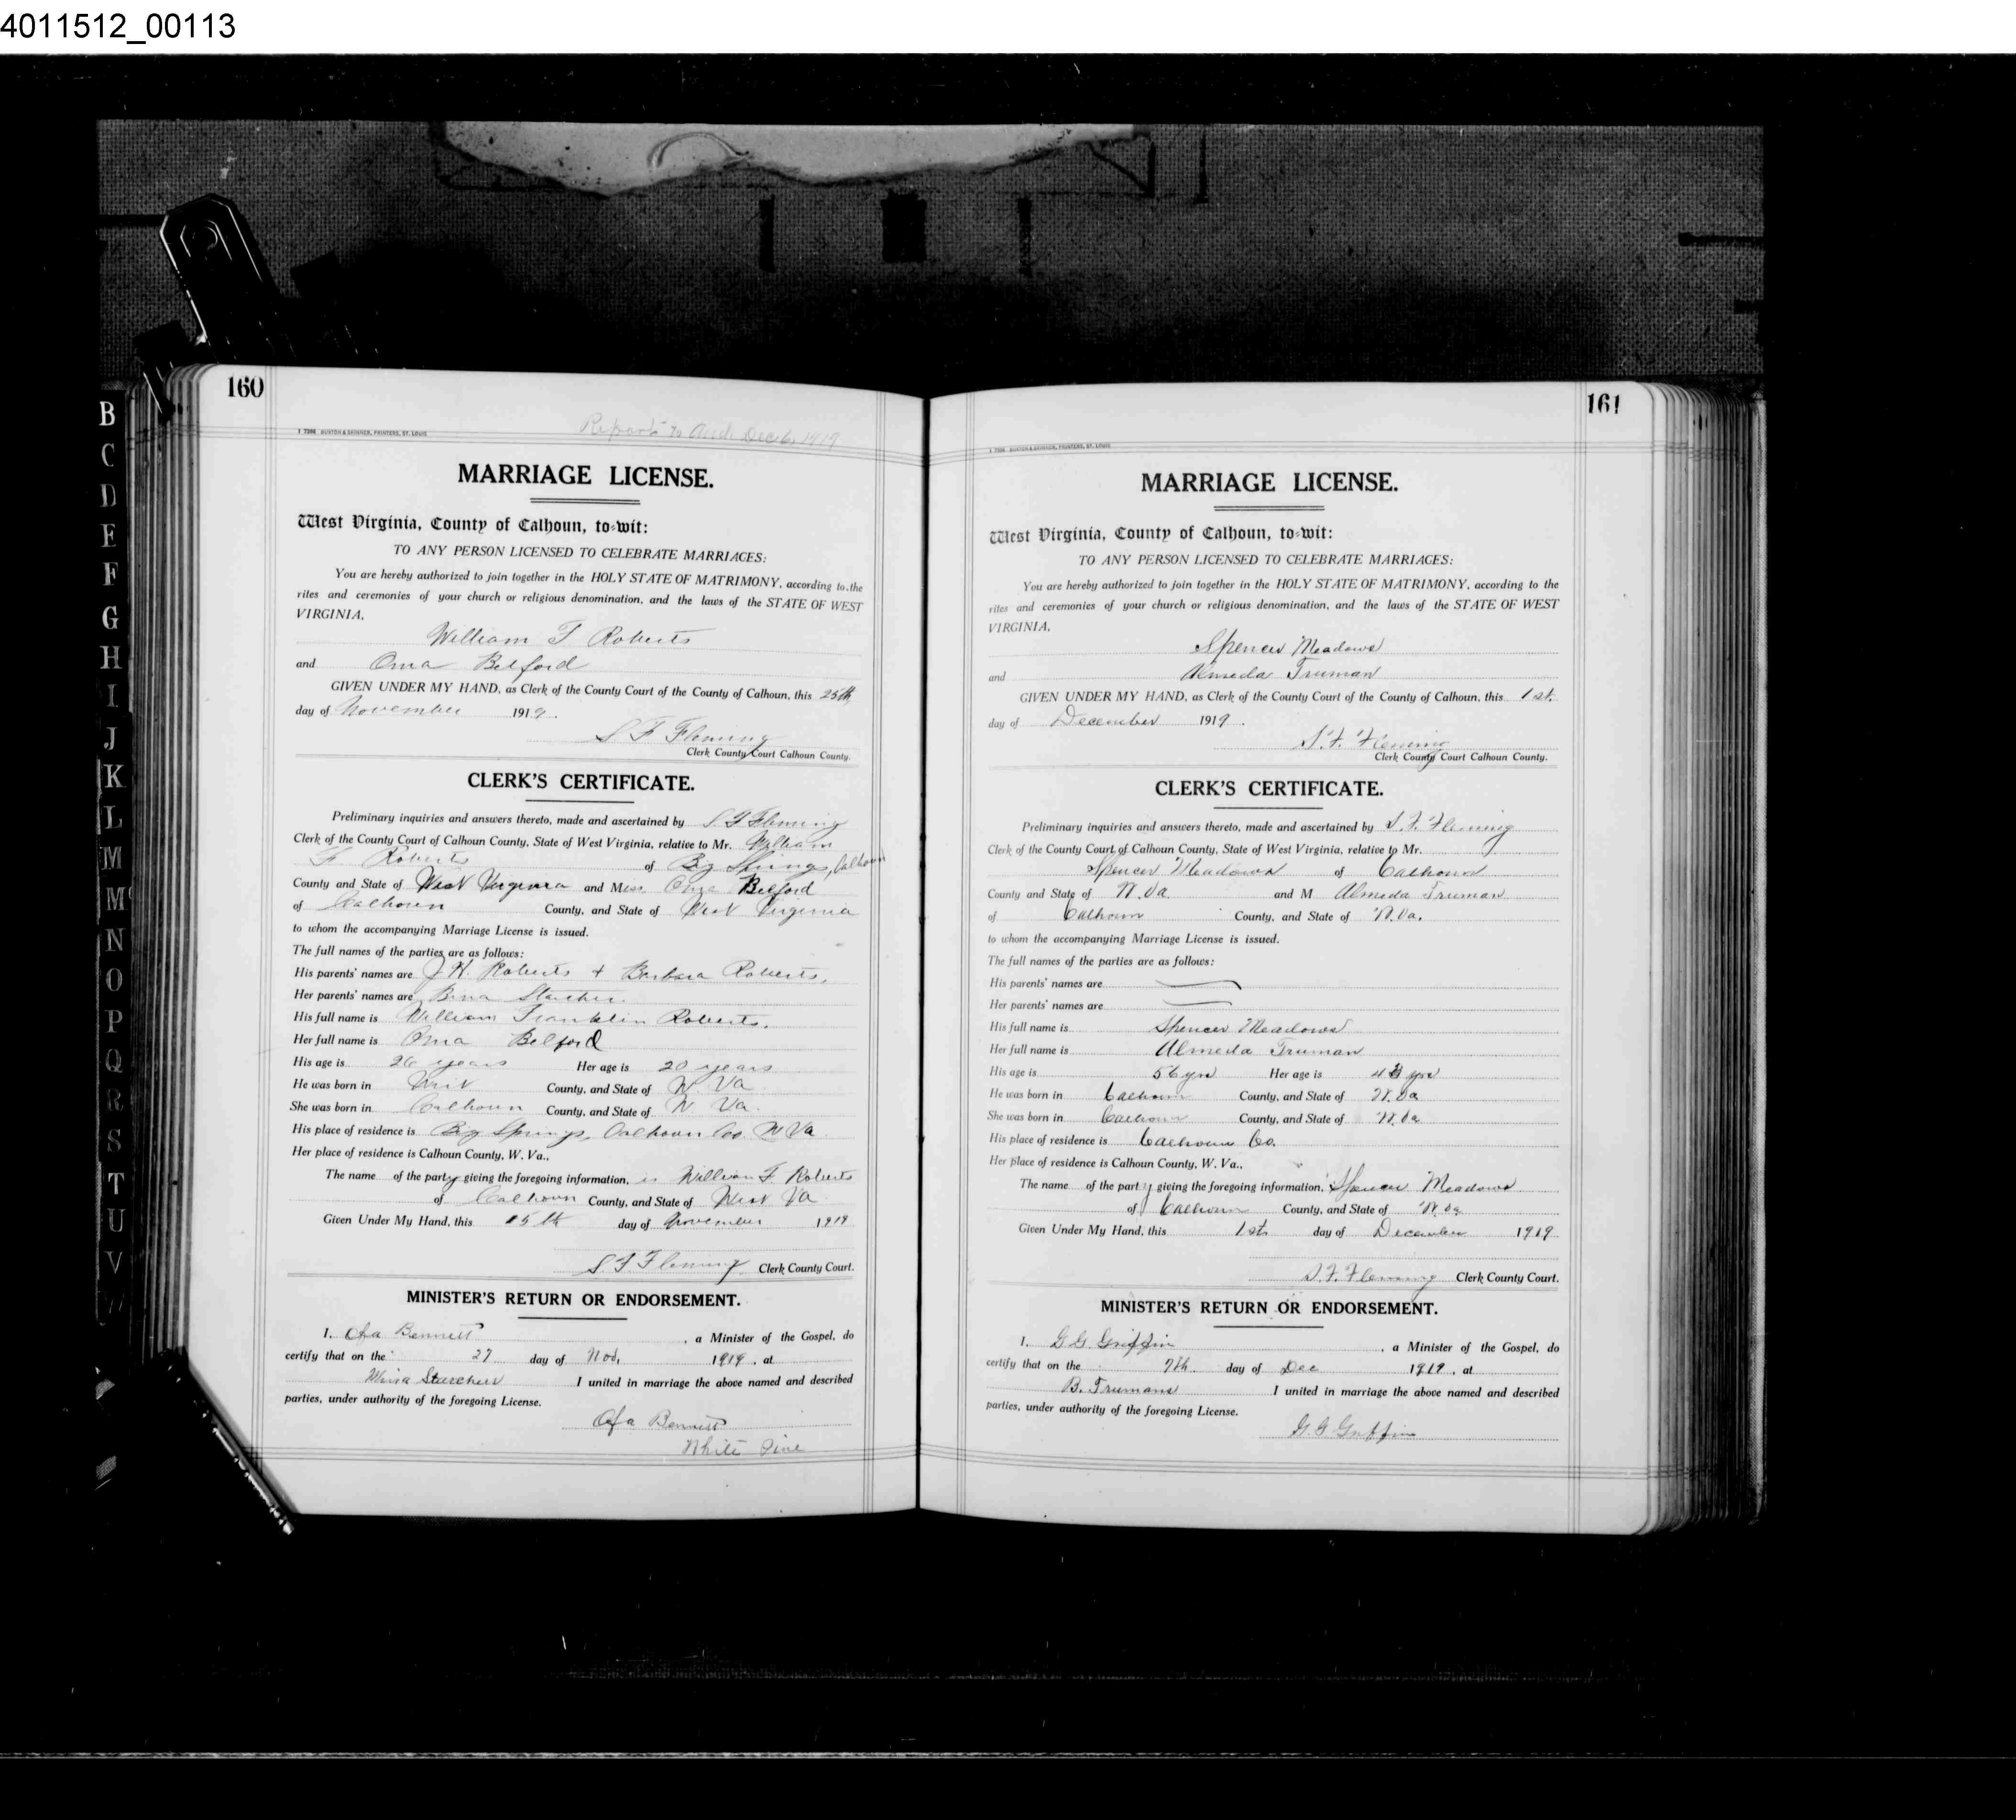 4011512_00113
160
Report to Aud. Dec 6, 1919
1 7398 BUXTON & SKINNER, PRINTERS, ST. LOUIS
MARRIAGE LICENSE.
West Virginia, County of Calhoun, to-wit:
TO ANY PERSON LICENSED TO CELEBRATE MARRIAGES:
You are hereby authorized to join together in the HOLY STATE OF MATRIMONY, according to the
rites and ceremonies of your church or religious denomination, and the laws of the STATE OF WEST
VIRGINIA.
William F Roberts
and Oma Belford
GIVEN UNDER MY HAND, as Clerk of the County Court of the County of Calhoun, this 25th
day of November 1919.
S F Fleming
Clerk County Court Calhoun County.
CLERK'S CERTIFICATE.
Preliminary inquiries and answers thereto, made and ascertained by S F Fleming
Clerk of the County Court of Calhoun County, State of West Virginia, relative to Mr. William
F Roberts of Big Springs, Calhoun
County and State of West Virginia and Miss Belford
of Calhoun County, and State of West Virginia
to whom the accompanying Marriage License is issued.
The full names of the parties are as follows:
His parents' names are J.H. Roberts + Barbara Roberts,
Her parents' names are Starcher.
His full name is William Franklin Roberts.
Her full name is Oma Belford
His age is 26 years Her age is 20 years
He was born in County, and State of W. Va
She was born in Calhoun County, and State of W Va.
His place of residence is Big Springs, Calhoun Co. W Va
Her place of residence is Calhoun County, W. Va.,
The name of the party giving the foregoing information, is William F. Roberts
of Calhoun County, and State of West Va
Given Under My Hand, this 25th day of November 1919
S. F Fleming Clerk County Court.
MINISTER'S RETURN OR ENDORSEMENT.
I, Ofa Bennett, a Minister of the Gospel, do
certify that on the 27 day of Nov, 1919, at
Starcher I united in marriage the above named and described
parties, under authority of the foregoing License.
Ofa Bennett
White Pine
161
1 7398 BUXTON & SKINNER, PRINTERS, ST. LOUIS
MARRIAGE LICENSE.
West Virginia, County of Calhoun, to-wit:
TO ANY PERSON LICENSED TO CELEBRATE MARRIAGES:
You are hereby authorized to join together in the HOLY STATE OF MATRIMONY, according to the
rites and ceremonies of your church or religious denomination, and the laws of the STATE OF WEST
VIRGINIA.
Spencer Meadows
and Almeda Truman
GIVEN UNDER MY HAND, as Clerk of the County Court of the County of Calhoun, this 1st.
day of December 1919.
S.F. Fleming
Clerk County Court Calhoun County.
CLERK'S CERTIFICATE.
Preliminary inquiries and answers thereto, made and ascertained by S.F. Fleming
Clerk of the County Court of Calhoun County, State of West Virginia, relative to Mr.
Spencer Meadows of Calhoun
County and State of W.Va. and M Almeda Truman
of Calhoun County, and State of W.Va.
to whom the accompanying Marriage License is issued.
The full names of the parties are as follows:
His parents' names are
Her parents' names are
His full name is Spencer Meadows
Her full name is Almeda Truman
His age is 56 yrs Her age is yrs
He was born in Calhoun County, and State of W.Va
She was born in Calhoun County, and State of W.Va
His place of residence is Calhoun Co.
Her place of residence is Calhoun County, W. Va.,
The name of the party giving the foregoing information, Spencer Meadows
of Calhoun County, and State of W.Va
Given Under My Hand, this 1st day of December 1919
S.F. Fleming Clerk County Court.
MINISTER'S RETURN OR ENDORSEMENT.
I, G.G. Griffin, a Minister of the Gospel, do
certify that on the 7th day of Dec 1919, at
B. Trumans I united in marriage the above named and described
parties, under authority of the foregoing License.
G.G. Griffin
B
C
D
E
F
G
H
I
J
K
L
M
M
N
O
P
Q
R
S
T
U
V
W